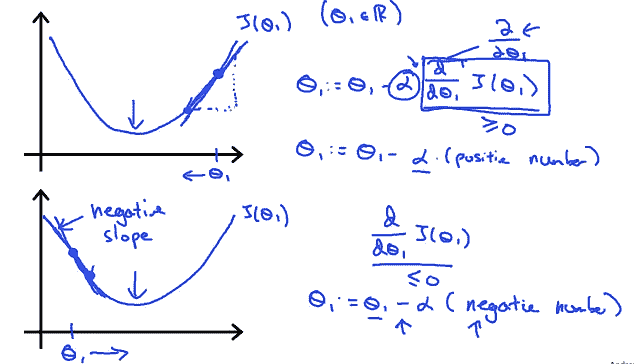 J(θ₁) (θ₁ ∈ ℝ)
∂/∂θ₁
θ₁ := θ₁ - α d/dθ₁ J(θ₁)
≥ 0
θ₁ := θ₁ - α · (positie number)
θ₁
negative slope
J(θ₁)
d/dθ₁ J(θ₁)
≤ 0
θ₁ := θ₁ - α (negatie number)
θ₁